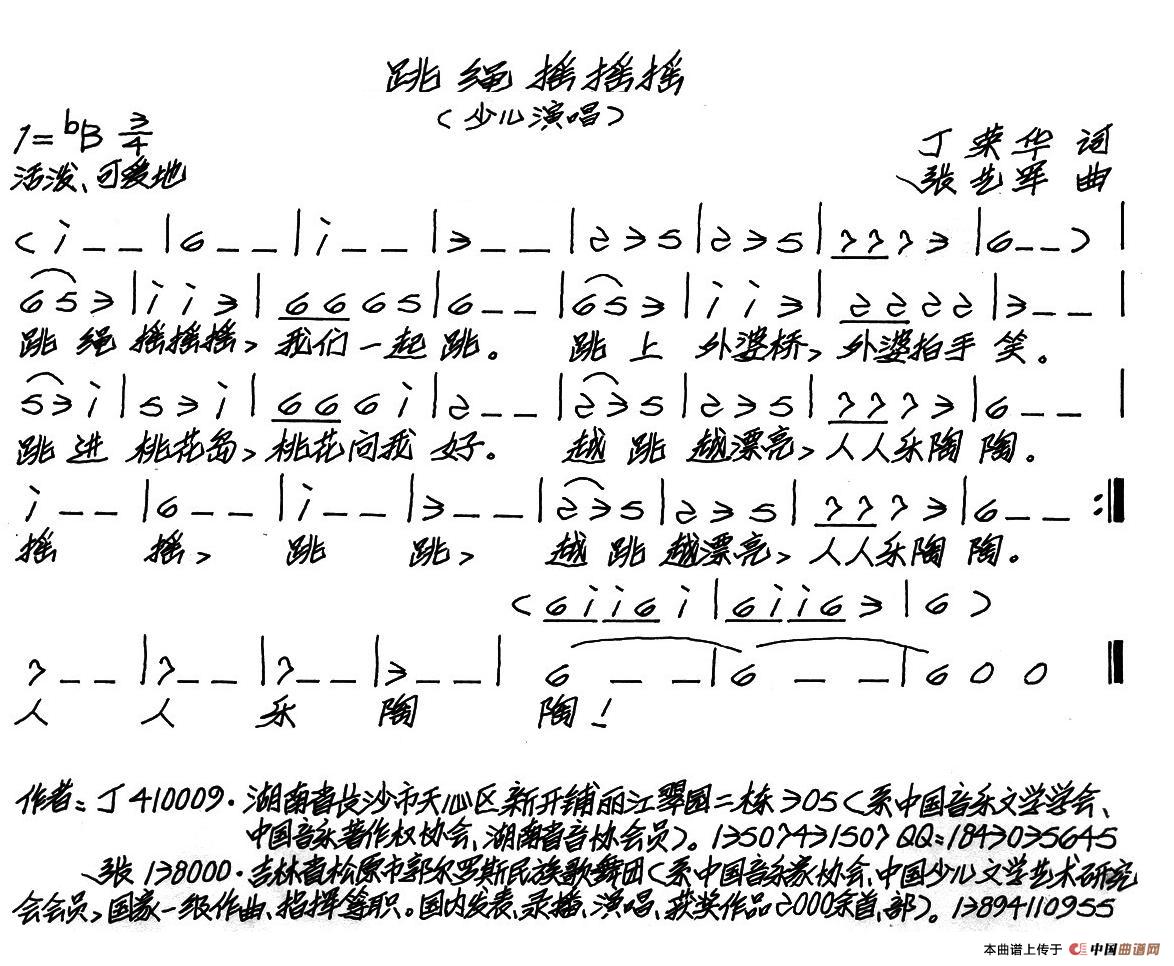 跳绳摇摇摇
(少儿演唱)
1=bB 3/4
丁荣华 词
活泼、可爱地
张艺军 曲
(i - - | 6 - - | i - - | 3 - - | 2 3 5 | 2 3 5 | 7 7 7 3 | 6 - - ) |
6 5 3 | i i 3 | 6 6 6 5 | 6 - - | 6 5 3 | i i 3 | 2 2 2 2 | 3 - - |
跳 绳 摇摇摇, 我们一起 跳。 跳 上 外婆桥, 外婆拍手 笑。
5 3 i | 5 3 i | 6 6 6 i | 2 - - | 2 3 5 | 2 3 5 | 7 7 7 3 | 6 - - |
跳 进 桃花岛, 桃花向我 好。 越 跳 越漂亮, 人人乐陶 陶。
i - - | 6 - - | i - - | 3 - - | 2 3 5 | 2 3 5 | 7 7 7 3 | 6 - - :|
摇 摇, 跳 跳, 越 跳 越漂亮, 人人乐陶 陶。
(6 i i 6 i | 6 i i 6 3 | 6 )
7 - - | 7 - - | 7 - - | 3 - - | 6 - - | 6 - - | 6 0 0
人 人 乐 陶 陶!
作者:丁410009·湖南省长沙市天心区新开铺丽江翠园二栋305(系中国音乐文学学会、
中国音乐著作权协会、湖南省音协会员)。13507431507 QQ:1843035645
张138000·吉林省松原市郭尔罗斯民族歌舞团(系中国音乐家协会、中国少儿文学艺术研究
会会员,国家一级作曲、指挥等职。国内发表、录播、演唱、获奖作品2000余首、部)。13894110955
本曲谱上传于 中国曲谱网